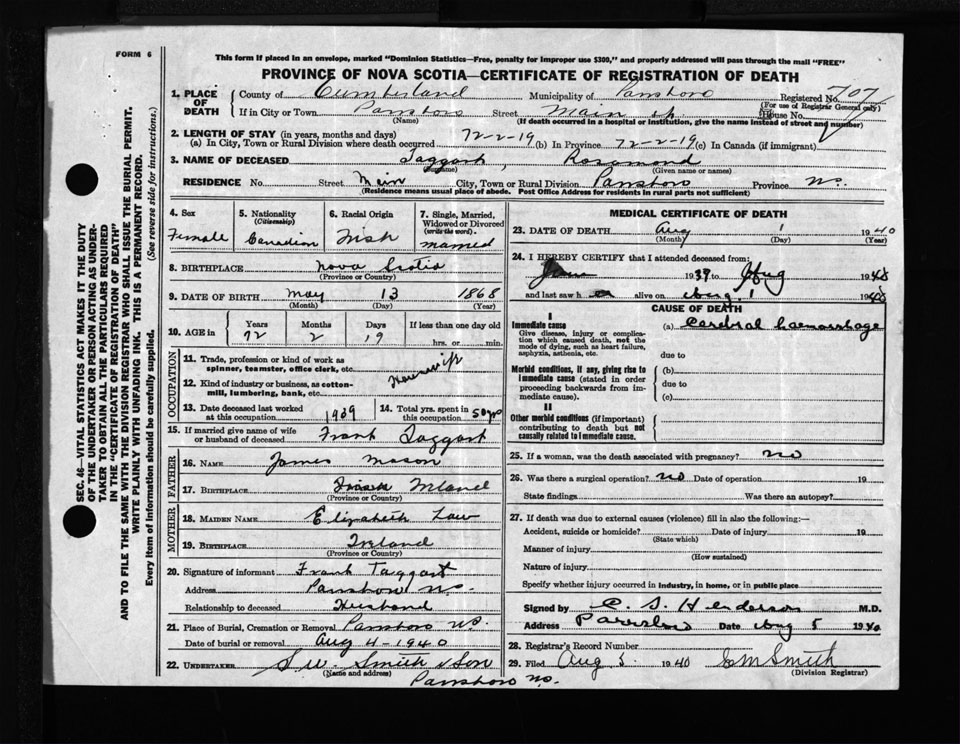 FORM 6
This form if placed in an envelope, marked "Dominion Statistics—Free, penalty for improper use $300," and properly addressed will pass through the mail "FREE"
PROVINCE OF NOVA SCOTIA—CERTIFICATE OF REGISTRATION OF DEATH
1. PLACE OF DEATH County of Cumberland Municipality of Parrsboro Registered No. 707
(For use of Registrar General only)
If in City or Town Parrsboro Street Main St House No.
(Name) (If death occurred in a hospital or institution, give the name instead of street and number)
2. LENGTH OF STAY (in years, months and days)
(a) In City, Town or Rural Division where death occurred 72-2-19 (b) In Province 72-2-19 (c) In Canada (if immigrant)
3. NAME OF DECEASED Taggart, Rosemond
(Given name or names)
RESIDENCE No. Street Main City, Town or Rural Division Parrsboro Province NS.
(Residence means usual place of abode. Post Office Address for residents in rural parts not sufficient)
4. Sex
Female
5. Nationality
(Citizenship)
Canadian
6. Racial Origin
Irish
7. Single, Married, Widowed or Divorced
(write the word)
Married
8. BIRTHPLACE Nova Scotia
(Province or Country)
9. DATE OF BIRTH May 13 1868
(Month) (Day) (Year)
10. AGE in Years Months Days If less than one day old
72 2 19 hrs. or min.
OCCUPATION
11. Trade, profession or kind of work as spinner, teamster, office clerk, etc. Housewife
12. Kind of industry or business, as cotton-mill, lumbering, bank, etc.
13. Date deceased last worked at this occupation 1939
14. Total yrs. spent in this occupation 50 yrs
15. If married give name of wife or husband of deceased Frank Taggart
FATHER
16. NAME James Mason
17. BIRTHPLACE Ireland
(Province or Country)
MOTHER
18. MAIDEN NAME Elizabeth Law
19. BIRTHPLACE Ireland
(Province or Country)
20. Signature of informant Frank Taggart
Address Parrsboro NS.
Relationship to deceased Husband
21. Place of Burial, Cremation or Removal Parrsboro NS.
Date of burial or removal Aug 4-1940
22. UNDERTAKER S W. Smith & Son
(Name and address)
Parrsboro NS.
MEDICAL CERTIFICATE OF DEATH
23. DATE OF DEATH Aug 1 1940
(Month) (Day) (Year)
24. I HEREBY CERTIFY that I attended deceased from:
June 1939 to Aug 1940
and last saw h er alive on Aug. 1 1940
CAUSE OF DEATH
I
Immediate cause
Give disease, injury or complication which caused death, not the mode of dying, such as heart failure, asphyxia, asthenia, etc.
(a) Cerebral haemorrhage
due to
Morbid conditions, if any, giving rise to immediate cause (stated in order proceeding backwards from immediate cause).
(b)
due to
(c)
II
Other morbid conditions (if important) contributing to death but not causally related to immediate cause.
25. If a woman, was the death associated with pregnancy? no
26. Was there a surgical operation? no Date of operation 19
State findings Was there an autopsy?
27. If death was due to external causes (violence) fill in also the following:—
Accident, suicide or homicide? Date of injury 19
(State which)
Manner of injury
(How sustained)
Nature of injury
Specify whether injury occurred in industry, in home, or in public place
Signed by C. S. Henderson M.D.
Address Parrsboro Date Aug 5 1940
28. Registrar's Record Number
29. Filed Aug 5. 1940 Smith
(Division Registrar)
SEC. 46—VITAL STATISTICS ACT MAKES IT THE DUTY
OF THE UNDERTAKER OR PERSON ACTING AS UNDER-
TAKER TO OBTAIN ALL THE PARTICULARS REQUIRED
IN THE "CERTIFICATE OF REGISTRATION OF DEATH"
AND TO FILE THE SAME WITH THE DIVISION REGISTRAR WHO SHALL ISSUE THE BURIAL PERMIT.
WRITE PLAINLY WITH UNFADING INK. THIS IS A PERMANENT RECORD.
Every item of information should be carefully supplied. (See reverse side for instructions.)